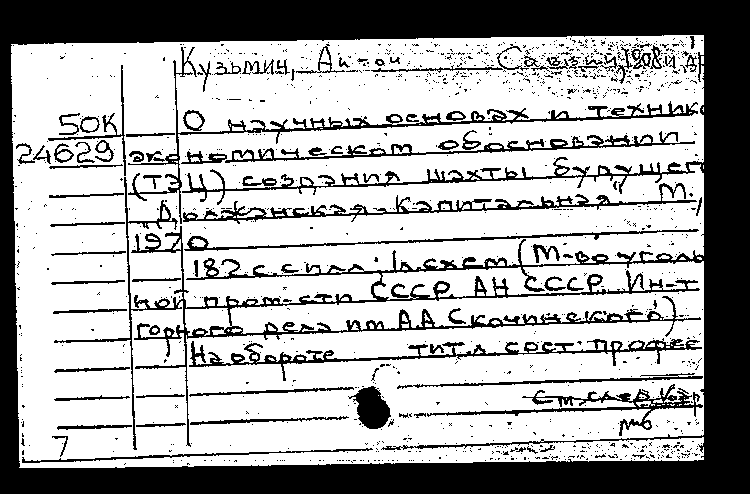 Кузьмин, Антон Саввич, 1908 и др
50К О научных основах и технико
24629 экономическом обосновании
(ТЭЦ) создания шахты будущего
"Должанская-Капитальная" М.,
1970
182 с. с илл; 1 л. схем. (М-во уголь
ной пром-сти СССР. АН СССР. Ин-т
горного дела им А.А. Скочинского)
На обороте тит. л. сост: профес
См. след. карт
мб
7